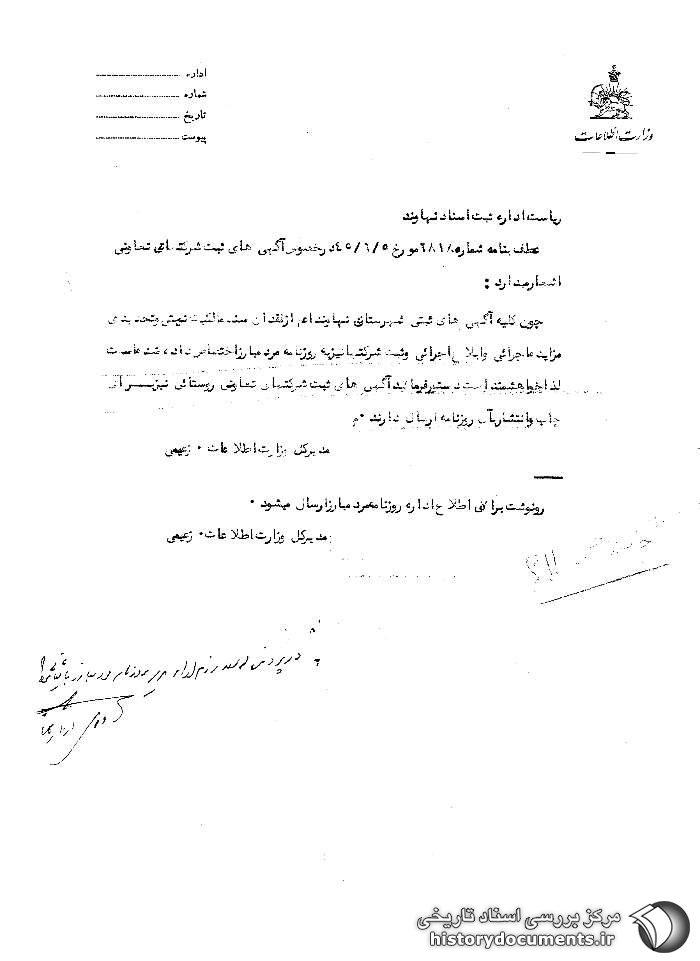 وزارت اطلاعات
اداره
شماره
تاریخ
پیوست
ریاست اداره ثبت اسناد نهاوند
عطف بنامه شماره ۶۸۱۸ مورخ ۴۵/۶/۵ در خصوص آگهی های ثبت شرکتهای تعاونی
اشعار میدارد :
چون کلیه آگهی های ثبتی شهرستان نهاوند اعم از فقدان سند مالکیت نوبتی و تحدیدی
مزایده اجرائی و ابلاغ اجرائی و ثبت شرکتها نیز به روزنامه مرد مبارز اختصاص داده شده است
لذا خواهشمند است دستور فرمائید آگهی های ثبت شرکتهای تعاونی روستائی نیز برای
چاپ و انتشار بآن روزنامه ارسال دارند . م
مدیر کل وزارت اطلاعات . زعیمی
رونوشت برای اطلاع اداره روزنامه مرد مبارز ارسال میشود .
مدیر کل وزارت اطلاعات . زعیمی
مرکز بررسی اسناد تاریخی
historydocuments.ir